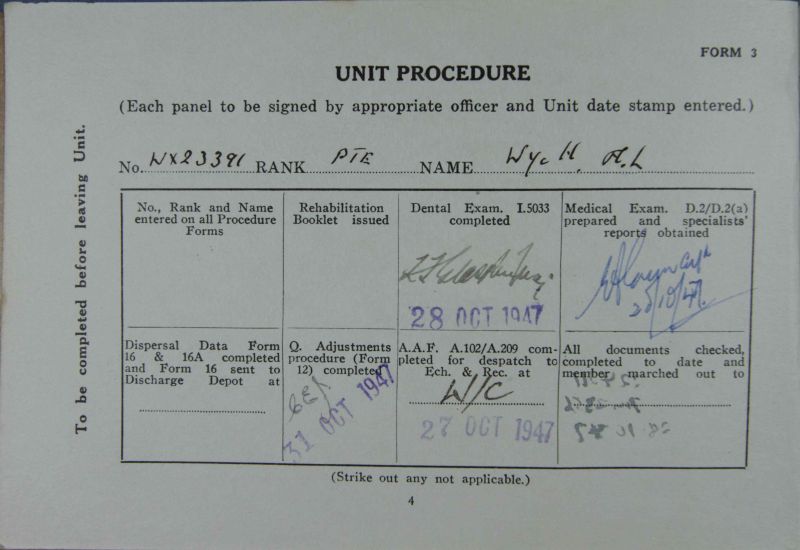 FORM 3
UNIT PROCEDURE
(Each panel to be signed by appropriate officer and Unit date stamp entered.)
To be completed before leaving Unit.
No. WX23391 RANK PTE NAME Wych. A.L
No., Rank and Name
entered on all Procedure
Forms
Rehabilitation
Booklet issued
Dental Exam. I.5033
completed
28 OCT 1947
Medical Exam. D.2/D.2(a)
prepared and specialists'
reports obtained
28/10/47.
Dispersal Data Form
16 & 16A completed
and Form 16 sent to
Discharge Depot at
Q. Adjustments
procedure (Form
12) completed
31 OCT 1947
A.A.F. A.102/A.209 com-
pleted for despatch to
Ech. & Rec. at
W/C
27 OCT 1947
All documents checked,
completed to date and
member marched out to
(Strike out any not applicable.)
4